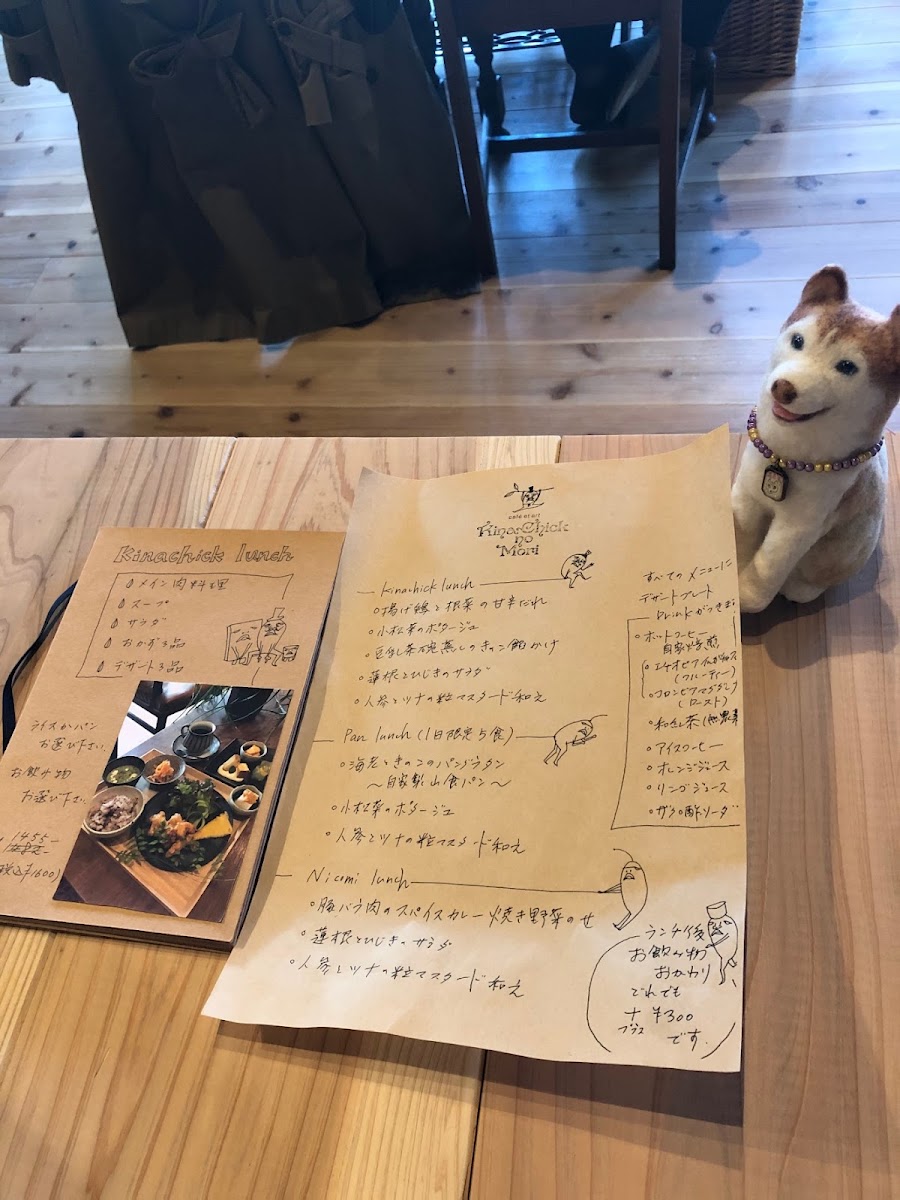 Kinachick lunch
メイン肉料理
スープ
サラダ
おかず3品
デザート3品
ライスかパン
お選び下さい。
お飲み物
お選び下さい
1455
税込¥1600)
café et art
KinaChick
no
Mori
Kinachick lunch
揚げ鶏と根菜の甘辛だれ
小松菜のポタージュ
茶碗蒸しのきのこ餡かけ
蓮根とひじきのサラダ
人参とツナの粒マスタード和え
Pan lunch (1日限定5食)
海老ときのこのパングラタン
〜自家製山食パン〜
小松菜のポタージュ
人参とツナの粒マスタード和え
Nicomi lunch
豚バラ肉のスパイスカレー焼き野菜のせ
蓮根とひじきのサラダ
人参とツナの粒マスタード和え
すべてのメニューに
デザートプレート
Drinkがつきます
ホットコーヒー
自家焙煎
エチオピア
(フルーティー)
コロンビア
(ロースト)
和紅茶
アイスコーヒー
オレンジジュース
リンゴジュース
ザクロ酢ソーダ
ランチ後
お飲み物
おかわり
どれでも
+ ¥300
プラス
です。